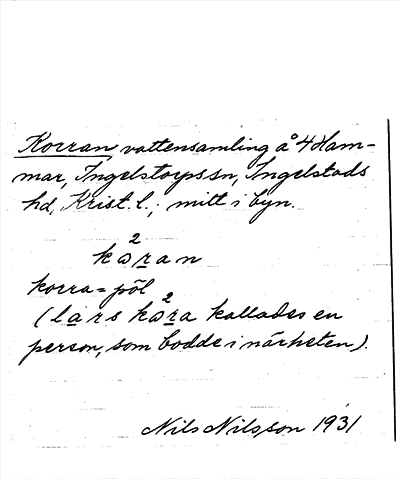 Korran, vattensamling å 4 Ham-
mar, Ingelstorps sn, Ingelstads
hd, Krist. l.; mitt i byn.
2
kɷran
korra = pöl
2
(lars kɷra kallades en
person, som bodde i närheten).
Nils Nilsson 1931